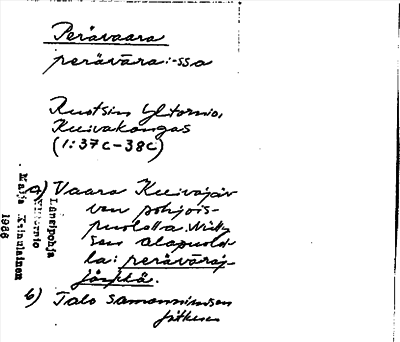 Perävaara
perävāra: -ssa
Ruotsin Ylitornio,
Kuivakangas
(1:37C-38C)
a) Vaara Kuivajär
ven pohjois-
puolella. Mäen
sen alapuolel-
la: peräväräj-
jänkkä.
b) Talo samannimisen
jatkuu
Länsipohja
Ylitornio
Maija Kainulainen
1966